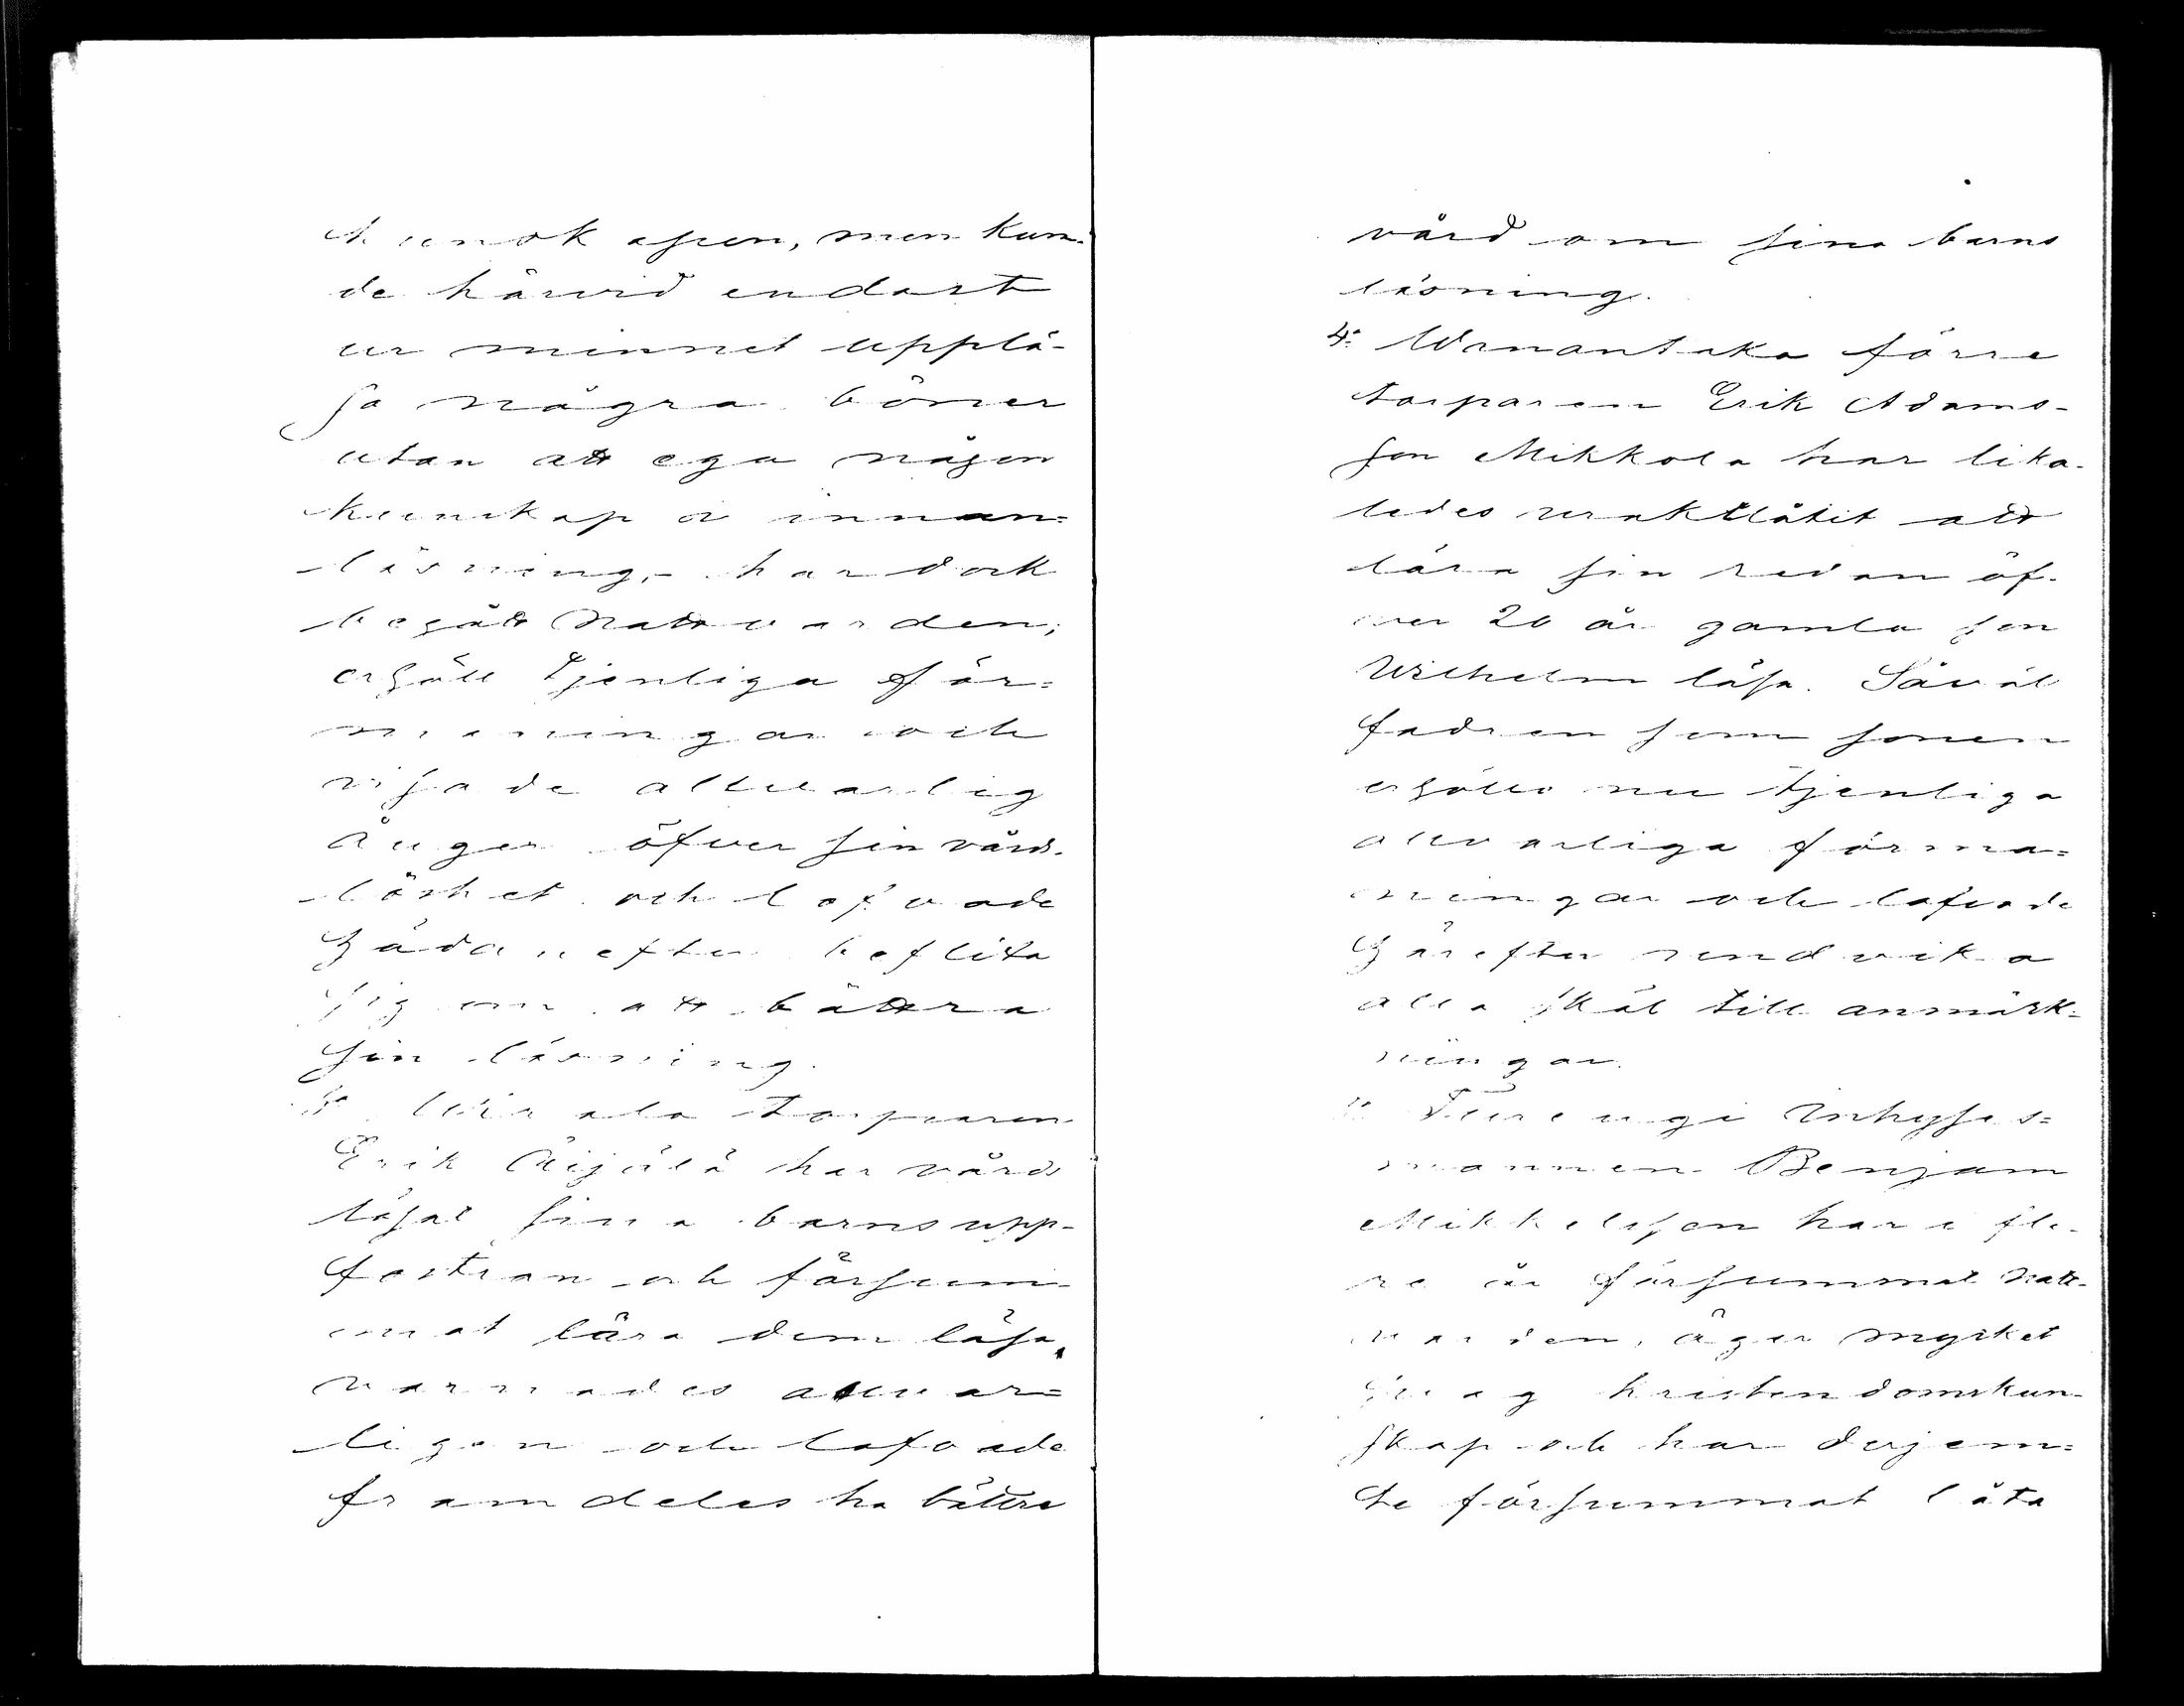 kunskapen, men kun-
de härvid endast
ur minnet upplä-
sa några böner
utan att ega någon
kunskap i innan=
läsning, har dock
begått Nattvarden;
erhöll tjenliga för=
maningar och
visade allvarlig
ånger öfver sin vårds-
löshet och lofvade
hädanefter beflita
sig om att bättra
sin läsning.
3º torparen
Erik Äijälä har vårds
lösat sina barns upp-
fostran och försum-
mat lära dem läsa,
varnades allvar=
ligen och lofvade
framdeles ha bättre
vård om sina barns
läsning.
4º Wanantaka förre
torparen Erik Adams-
son Mikkola har lika-
ledes uraktlåtit att
lära sin redan öf-
ver 20 år gamla son
Wilhelm läsa. Såväl
fadren som sonen
erhöllo nu tjenliga
allvarliga förma=
ningar och lofvade
härefter undvika
alla skäl till anmärk-
ningar.
Turengi Inhyses=
mannen Benjam
Mikkelsson har i fle-
re år försummat Natt-
varden, äger mycket
svag kristendomskun-
skap och har derjem=
te försummat låta